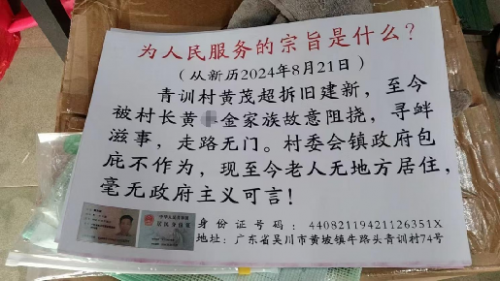 为人民服务的宗旨是什么?
(从新历2024年8月21日)
青训村黄茂超拆旧建新,至今
被村长黄 金家族故意阻挠,寻衅
滋事,走路无门。村委会镇政府包
庇不作为,现至今老人无地方居住,
毫无政府主义可言!
身份证号码:44082119421126351X
地址:广东省吴川市黄坡镇牛路头青训村74号